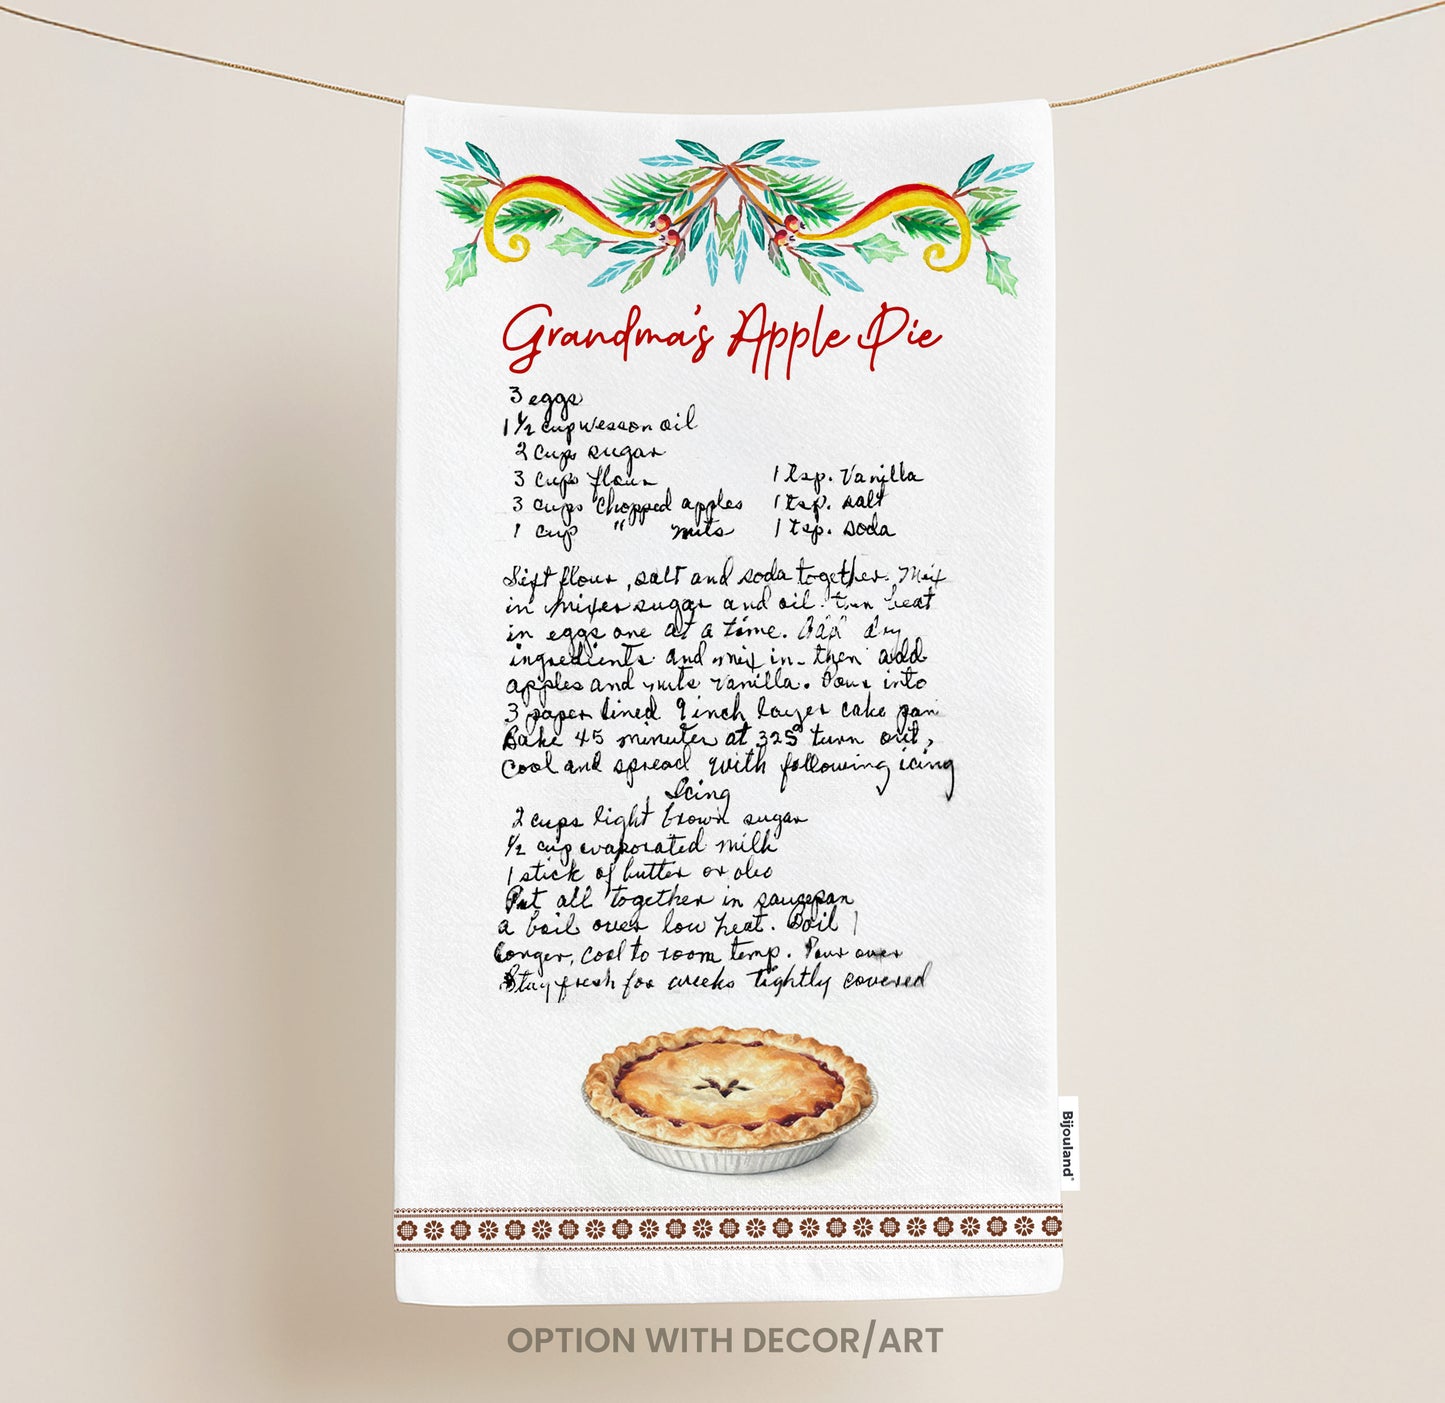 Grandma's Apple Pie
3 eggs
1 1/2 cup wesson oil
2 cups sugar
3 cups flour
1 tsp. Vanilla
3 cups chopped apples
1 tsp. salt
1 cup " nuts
1 tsp. soda
Sift flour, salt and soda together. Mix
in mixer sugar and oil. then beat
in eggs one at a time. Add dry
ingredients and mix in. then add
apples and nuts vanilla. Pour into
3 paper lined 9 inch layer cake pan
Bake 45 minutes at 325° turn out,
Cool and spread with following icing
Icing
2 cups light brown sugar
1/2 cup evaporated milk
1 stick of butter or oleo
Put all together in saucepan
a boil over low heat. Boil 1
longer, cool to room temp. Pour over
Stay fresh for weeks tightly covered
Bijouland
OPTION WITH DECOR/ART